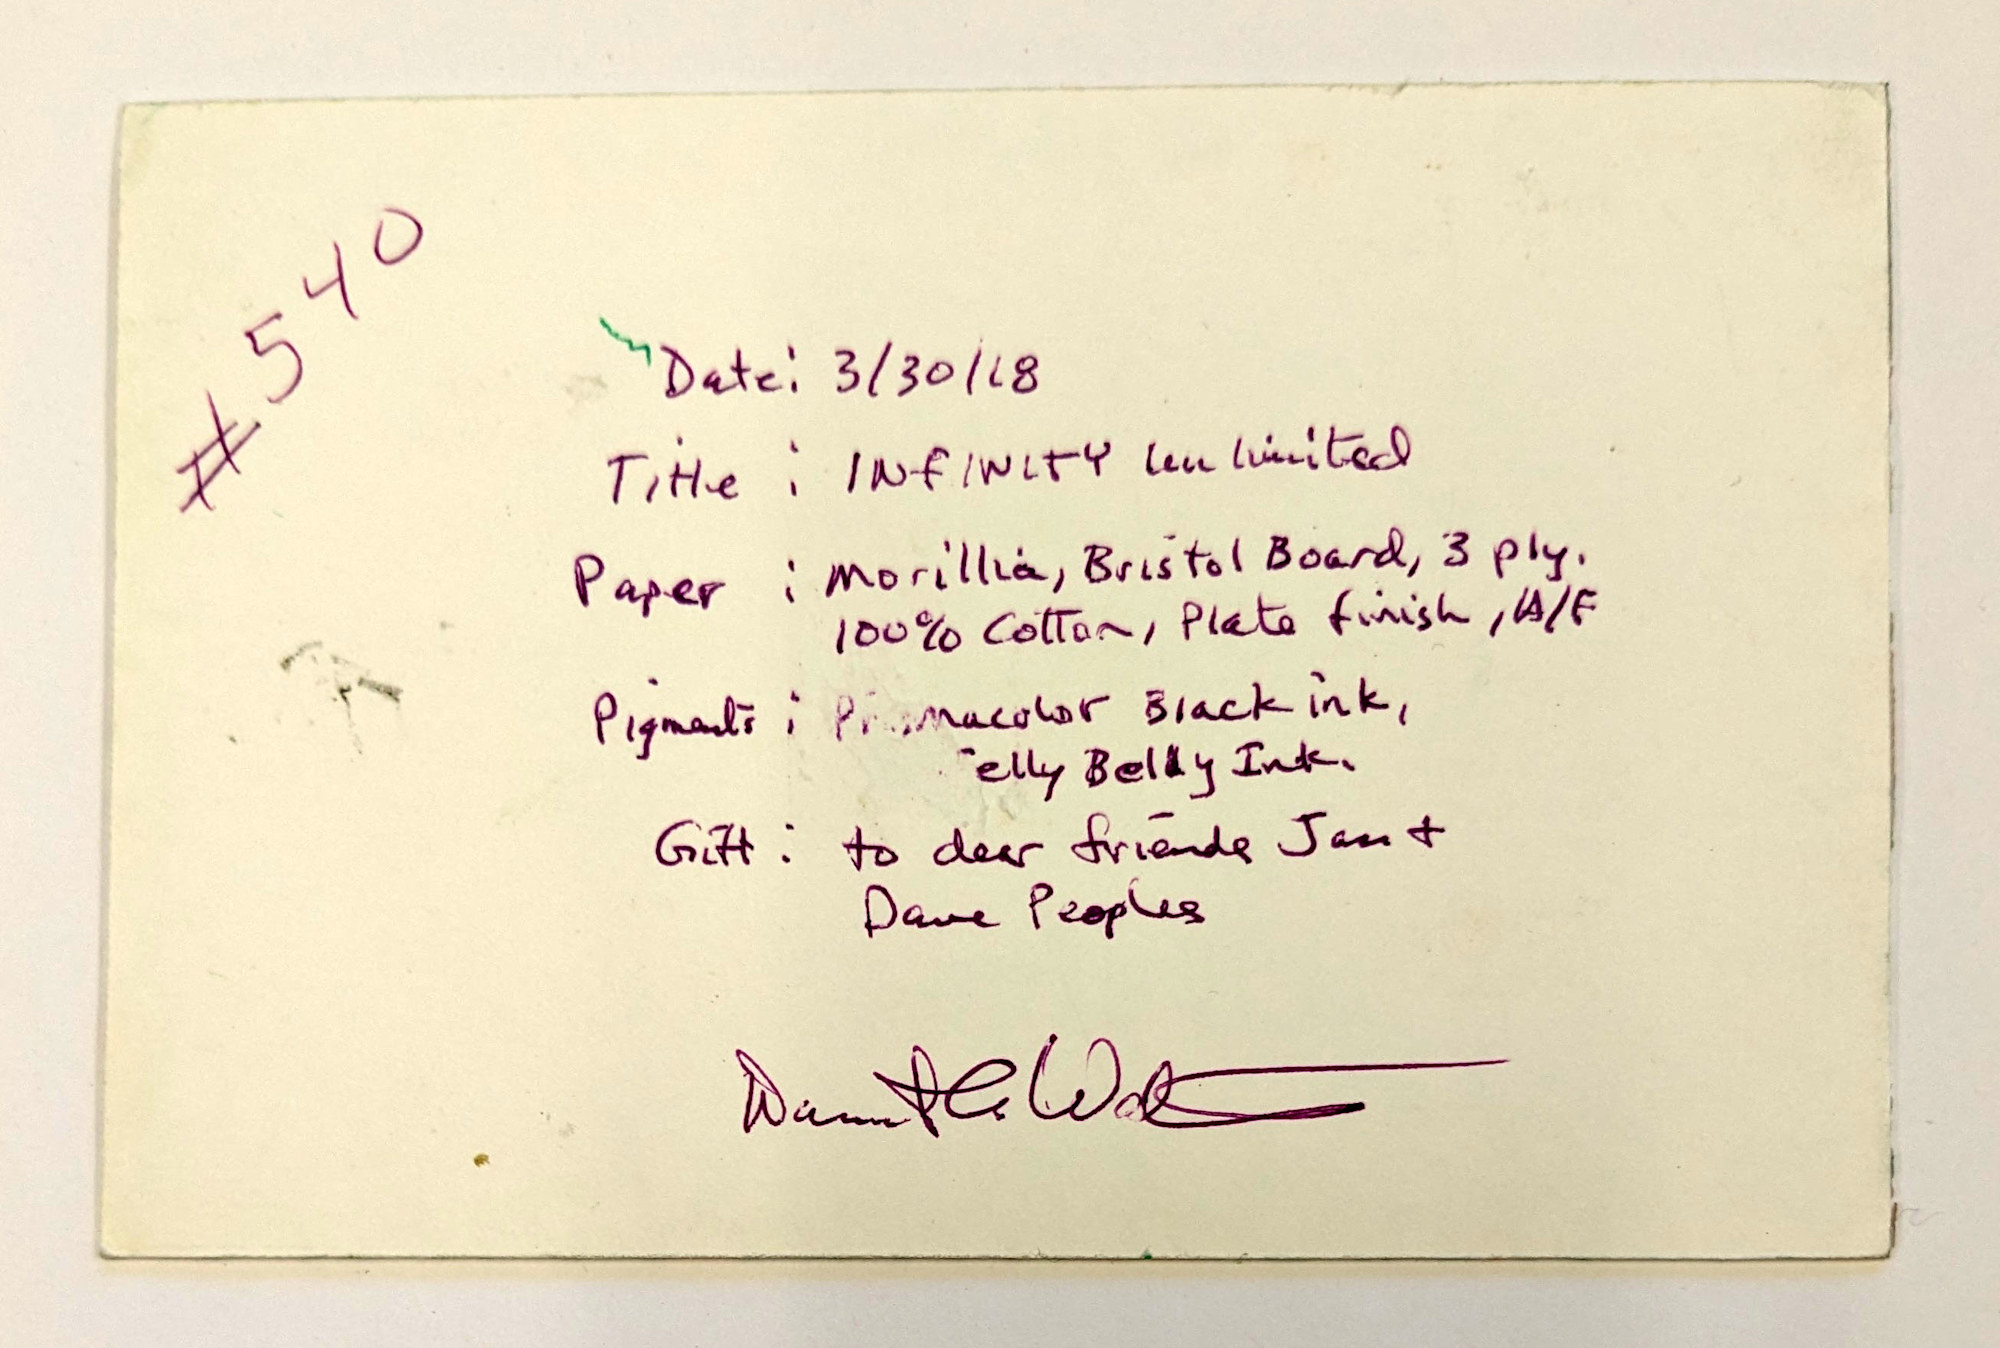 #540
Date: 3/30/18
Title: INFINITY Unlimited
Paper: Morillia, Bristol Board, 3 ply.
100% Cotton, Plate finish, A/F
Pigments: Prismacolor Black ink,
elly Belly Ink.
Gift: to dear friends Jan +
Dave Peoples